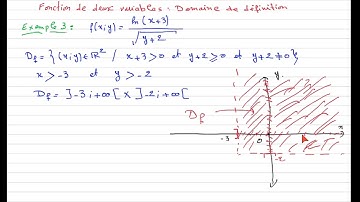 Fonction de deux variables : Domaine de définition
Example 3 : f(x;y) = ln(x+3) / √(y+2)
Df = { (x;y) ∈ ℝ² / x+3 > 0 et y+2 ≥ 0 et y+2 ≠ 0 }
x > -3 et y > -2
Df = ]-3 ; +∞[ X ]-2 ; +∞[
y
Df
-3
0
x
-2